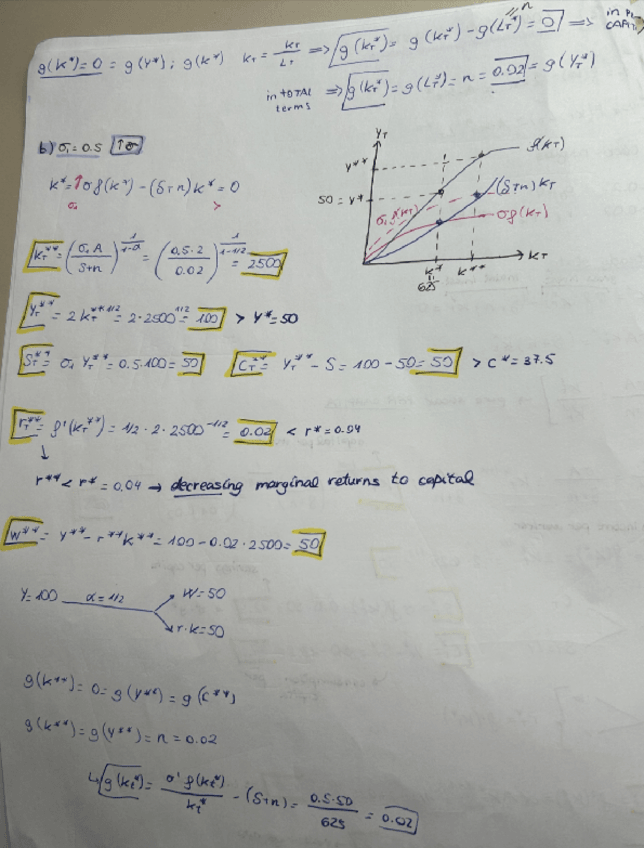 g(k*)=0 = g(y*); g(k*) k_T = K_T / L_T => g(k_T*) = g(K_T*) - g(L_T*) = 0 => in
n
CAPIT
in TOTAL terms => g(K_T*) = g(L_T*) = n = 0.02 = g(Y_T*)
b) σ₁ = 0.5 ↑σ
k* = ↑σ f(k*) - (δ+n)k* = 0
σ₁ >
k_T** = (σ₁A / δ+n)^(1/1-α) = (0.5·2 / 0.02)^(1/1-1/2) = 2500
Y_T** = 2k_T**^1/2 = 2·2500^1/2 = 100 > Y* = 50
S_T** = σ₁ Y_T** = 0.5·100 = 50 C_T** = Y_T** - S = 100 - 50 = 50 > c* = 37.5
r_T** = f'(k_T**) = 1/2 · 2 · 2500^-1/2 = 0.02 < r* = 0.04
↓
r** < r* = 0.04 → decreasing marginal returns to capital
W** = Y** - r**k** = 100 - 0.02 · 2500 = 50
Y=100 α=1/2 W=50
r·k=50
g(k**) = 0 = g(y**) = g(c**)
g(K**) = g(Y**) = n = 0.02
↳ g(k_t*) = σ' f(k_t*) / k_t* - (δ+n) = 0.5·50 / 625 = 0.02
Y_T
Y**
50 = Y*
f(k_T)
(δ+n)k_T
σ₁ f(k_T)
σf(k_T)
k_T
k* k**
=
625